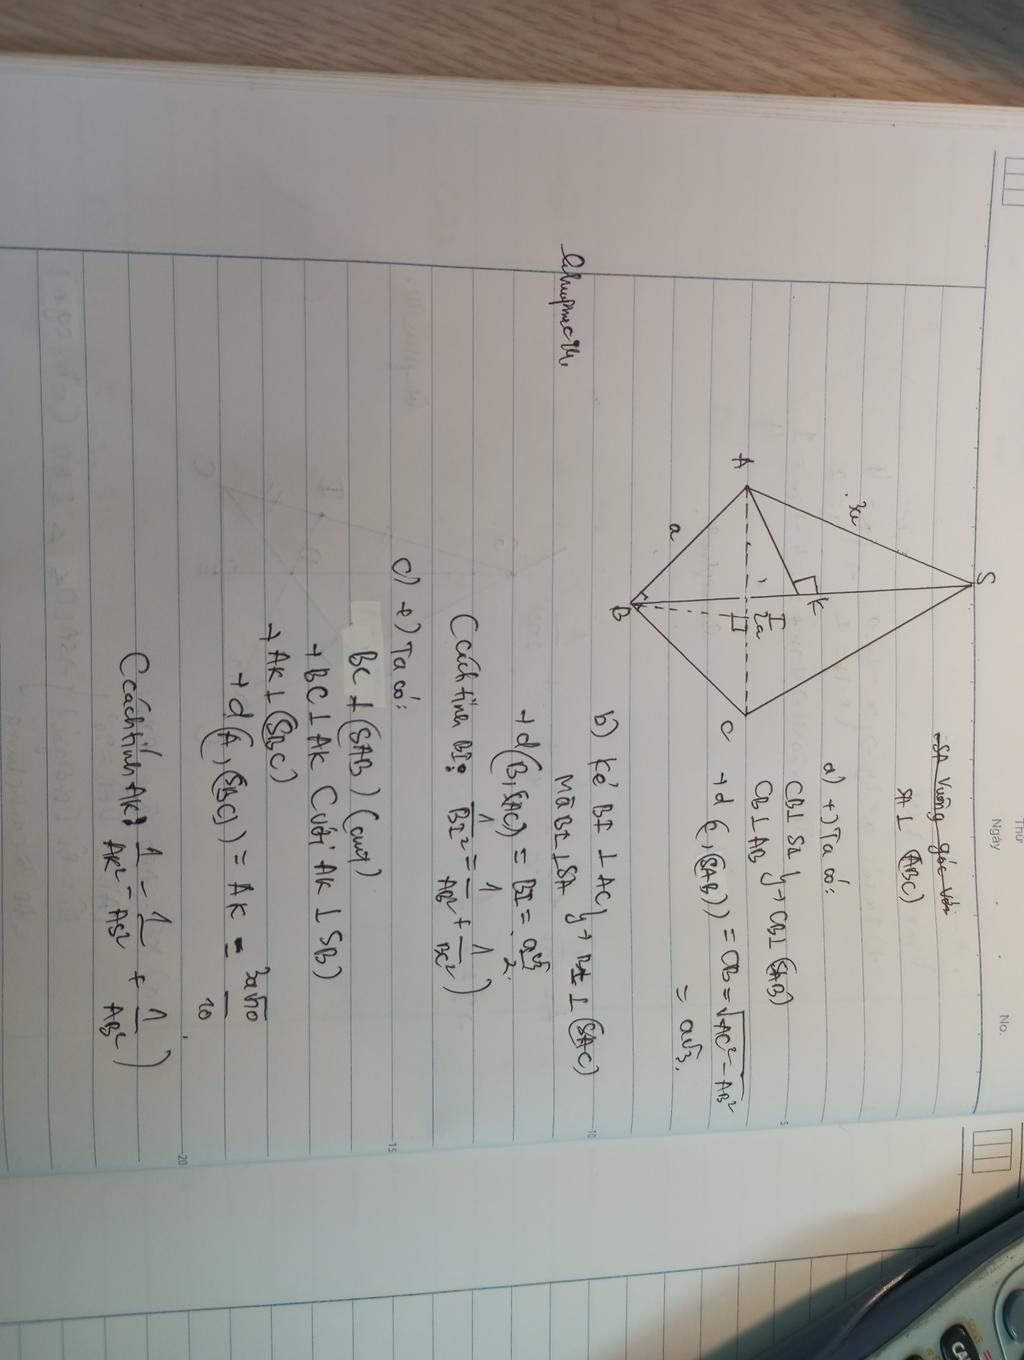 Thứ
Ngày
No.
-SA vuông góc với
SA ⊥ (ABC)
S
3a
A
K
I
2a
C
a
B
a) +) Ta có:
CB ⊥ SA } → CB ⊥ (SAB)
CB ⊥ AB
→ d(C, (SAB)) = CB = √AC² - AB²
= a√3.
b) Kẻ BI ⊥ AC }
Mà BI ⊥ SA } → BI ⊥ (SAC)
→ d(B, (SAC)) = BI = a√3/2.
(Cách tính BI: 1/BI² = 1/AB² + 1/BC²)
c) +) Ta có:
BC ⊥ (SAB) (cmt)
→ BC ⊥ AK (với AK ⊥ SB)
→ AK ⊥ (SBC)
→ d(A, (SBC)) = AK = 3a√10/10
(Cách tính AK: 1/AK² = 1/AS² + 1/AB²)
5
10
15
20